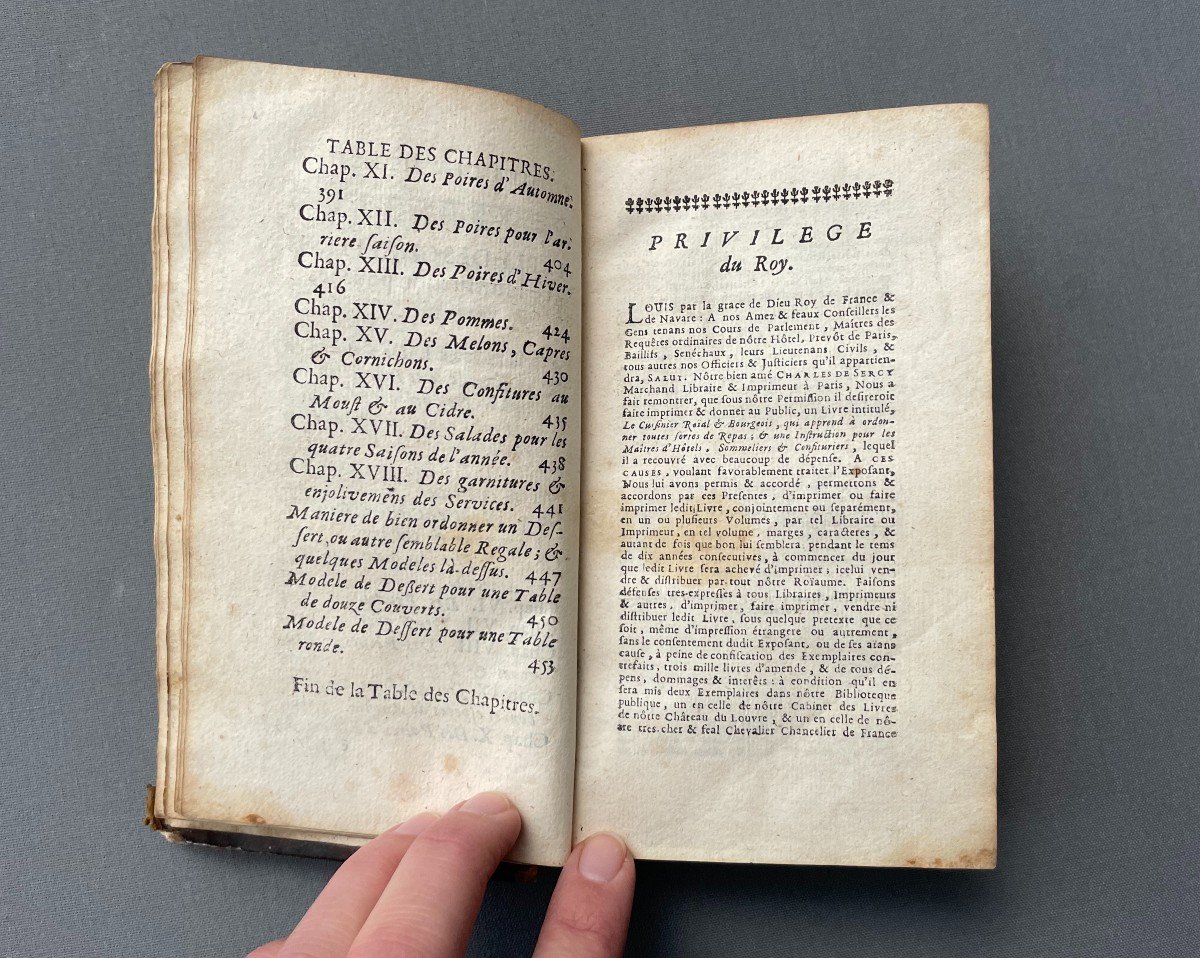 TABLE DES CHAPITRES.
Chap. XI. Des Poires d'Automne.
391
Chap. XII. Des Poires pour l'ar-
riere ſaiſon. 404
Chap. XIII. Des Poires d'Hiver.
416
Chap. XIV. Des Pommes. 424
Chap. XV. Des Melons, Capres
& Cornichons. 430
Chap. XVI. Des Confitures au
Mouſt & au Cidre. 435
Chap. XVII. Des Salades pour les
quatre Saiſons de l'année. 438
Chap. XVIII. Des garnitures &
enjolivemens des Services. 441
Maniere de bien ordonner un Deſ-
ſert, ou autre ſemblable Regale; &
quelques Modeles là-deſſus. 447
Modele de Deßert pour une Table
de douze Couverts. 450
Modele de Deſſert pour une Table
ronde. 453
Fin de la Table des Chapitres.
PRIVILEGE
du Roy.
LOUIS par la grace de Dieu Roy de France &
de Navare : A nos Amez & feaux Conſeillers les
Gens tenans nos Cours de Parlement, Maîtres des
Requêtes ordinaires de nôtre Hôtel, Prevôt de Paris,
Baillifs, Senéchaux, leurs Lieutenans Civils, &
tous autres nos Officiers & Juſticiers qu'il appartien-
dra, SALUT. Nôtre bien amé CHARLES DE SERCY
Marchand Libraire & Imprimeur à Paris, Nous a
fait remontrer, que ſous nôtre Permiſſion il deſireroit
faire imprimer & donner au Public, un Livre intitulé,
Le Cuiſinier Roïal & Bourgeois, qui apprend à ordon-
ner toutes ſortes de Repas; & une Inſtruction pour les
Maîtres d'Hôtels, Sommeliers & Confituriers, lequel
il a recouvré avec beaucoup de dépenſe. A CES
CAUSES, voulant favorablement traiter l'Expoſant,
Nous lui avons permis & accordé, permettons &
accordons par ces Preſentes, d'imprimer ou faire
imprimer ledit Livre, conjointement ou ſeparément,
en un ou pluſieurs Volumes, par tel Libraire ou
Imprimeur, en tel volume, marges, caracteres, &
autant de fois que bon lui ſemblera pendant le tems
de dix années conſecutives, à commencer du jour
que ledit Livre ſera achevé d'imprimer; icelui ven-
dre & diſtribuer par tout nôtre Roïaume. Faiſons
défenſes tres-expreſſes à tous Libraires, Imprimeurs
& autres, d'imprimer, faire imprimer, vendre ni
diſtribuer ledit Livre, ſous quelque pretexte que ce
ſoit, même d'impreſſion étrangere ou autrement,
ſans le conſentement dudit Expoſant, ou de ſes aians
cauſe, à peine de confiſcation des Exemplaires con-
trefaits, trois mille livres d'amende, & de tous dé-
pens, dommages & interêts : à condition qu'il en
ſera mis deux Exemplaires dans nôtre Biblioteque
publique, un en celle de nôtre Cabinet des Livres
de nôtre Château du Louvre, & un en celle de nô-
tre tres-cher & feal Chevalier Chancelier de France